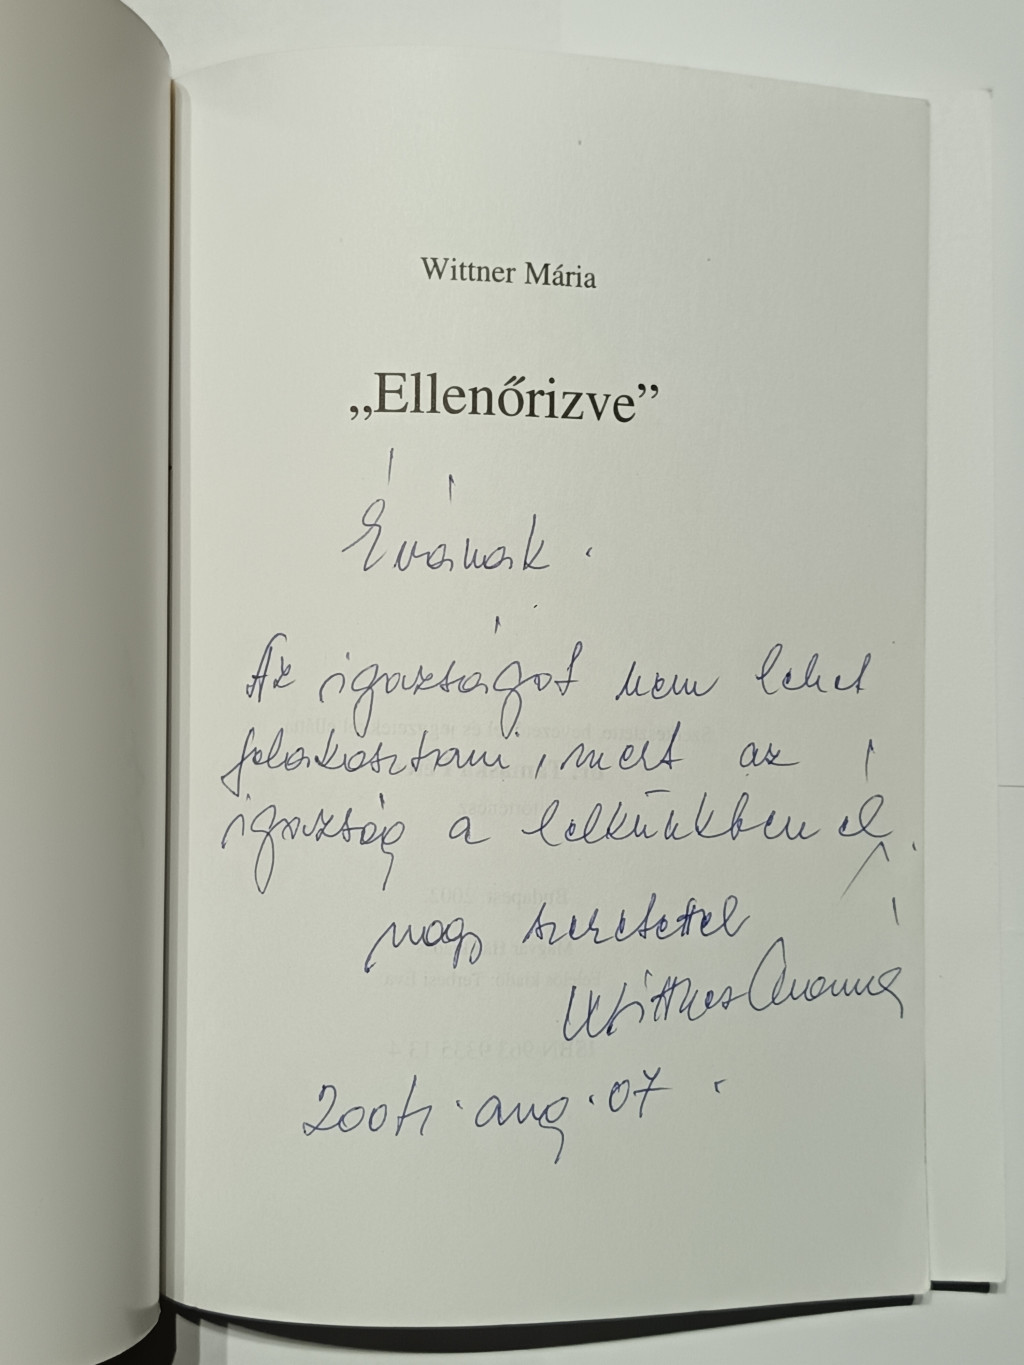 Wittner Mária
„Ellenőrizve”
Évának.
Az igazságot nem lehet
felakasztani, mert az
igazság a lelkünkben él.
nagy szeretettel
Wittner Mária
2004. aug. 07.